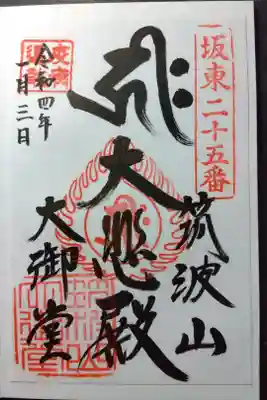 坂東二十五番
筑波山
大悲殿
大御堂
令和四年
一月三日